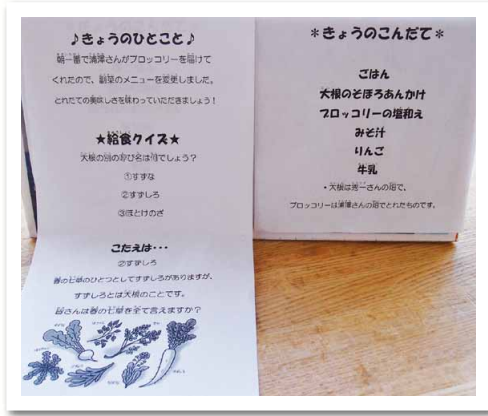 ♪きょうのひとこと♪
朝一番で清澤さんがブロッコリーを届けて
くれたので、副菜のメニューを変更しました。
とれたての美味しさを味わっていただきましょう！
★給食クイズ★
大根の別の呼び名は何でしょう？
①すずな
②すずしろ
③ほとけのざ
こたえは・・・
②すずしろ
春の七草のひとつとしてすずしろがありますが、
すずしろとは大根のことです。
皆さんは春の七草を全て言えますか？
＊きょうのこんだて＊
ごはん
大根のそぼろあんかけ
ブロッコリーの塩和え
みそ汁
りんご
牛乳
・大根は秀一さんの畑で、
ブロッコリーは清澤さんの畑でとれたものです。